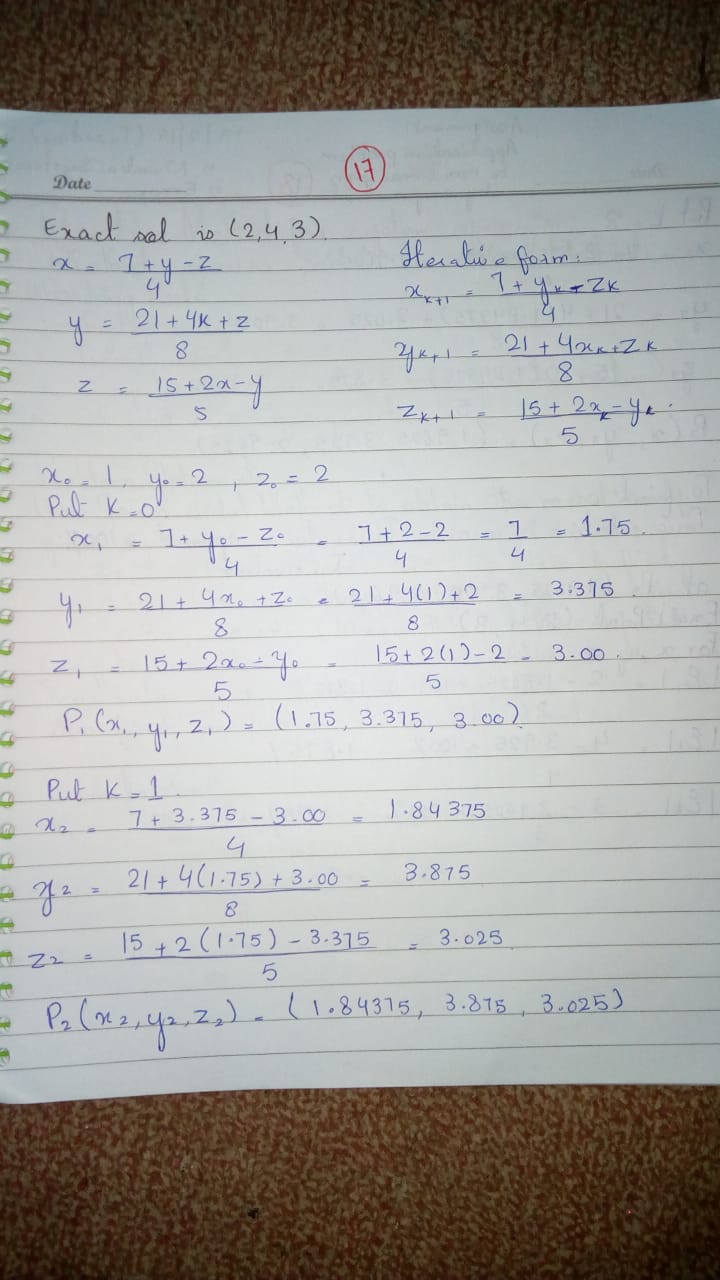 17
Date
Exact sol is (2,4,3)
x = 7+y-z / 4
Iterative form:
x_{k+1} = 7+y_k-z_k / 4
y = 21+4x+z / 8
y_{k+1} = 21+4x_k+z_k / 8
z = 15+2x-y / 5
z_{k+1} = 15+2x_k-y_k / 5
x₀=1, y₀=2, z₀=2
Put K=0
x₁ = 7+y₀-z₀ / 4 = 7+2-2 / 4 = 7 / 4 = 1.75
y₁ = 21+4x₀+z₀ / 8 = 21+4(1)+2 / 8 = 3.375
z₁ = 15+2x₀-y₀ / 5 = 15+2(1)-2 / 5 = 3.00
P₁(x₁, y₁, z₁) = (1.75, 3.375, 3.00)
Put K=1
x₂ = 7+3.375-3.00 / 4 = 1.84375
y₂ = 21+4(1.75)+3.00 / 8 = 3.875
z₂ = 15+2(1.75)-3.375 / 5 = 3.025
P₂(x₂,y₂,z₂) = (1.84375, 3.875, 3.025)